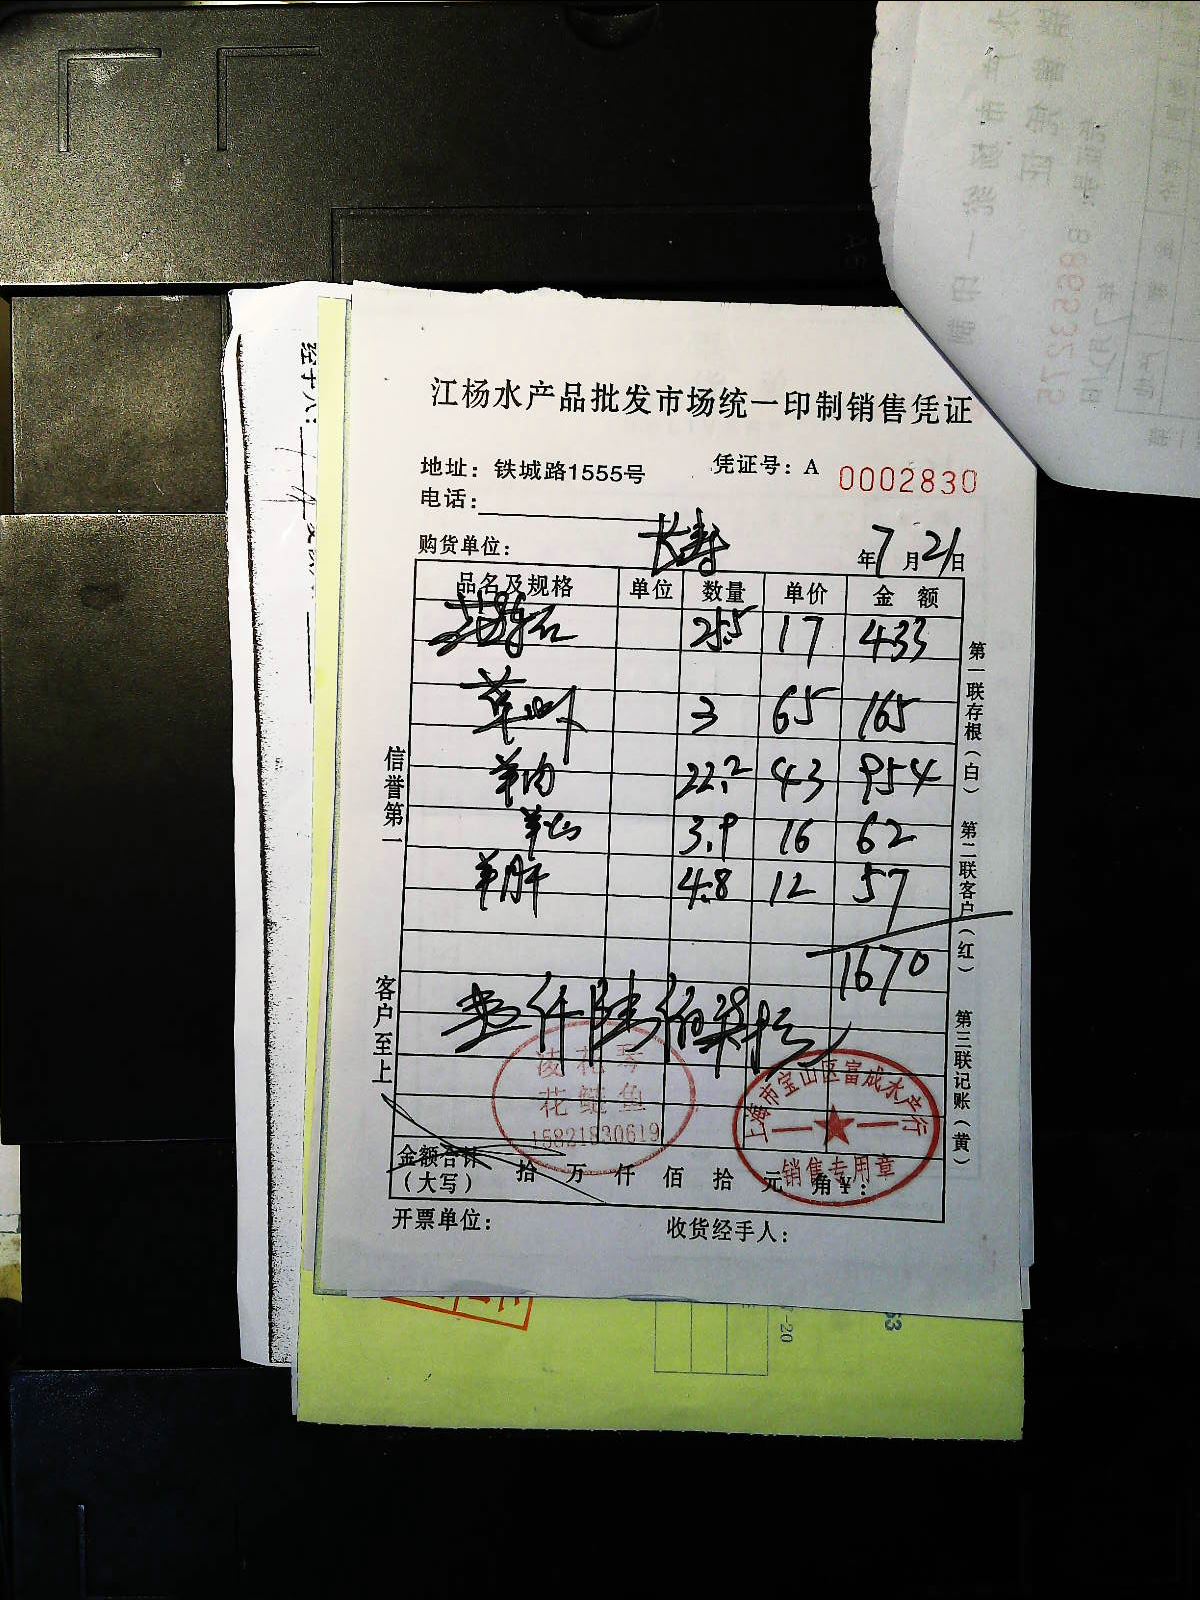 江杨水产品批发市场统一印制销售凭证
地址：铁城路1555号 凭证号：A 0002830
电话：
购货单位： 长寿 年7月21日
品名及规格 单位 数量 单价 金额
25.5 17 433
3 65 165
羊肉 22.2 43 954
3.9 16 62
羊肝 4.8 12 57
1670
壹仟陆佰柒拾元
凌花琴
花鲢鱼
15821830619
上海市宝山区富成水产行
销售专用章
金额合计（大写） 拾 万 仟 佰 拾 元 角 ¥：
开票单位： 收货经手人：
信誉第一
客户至上
第一联存根（白）
第二联客户（红）
第三联记账（黄）
经手人：
88653275
-20
53
A6